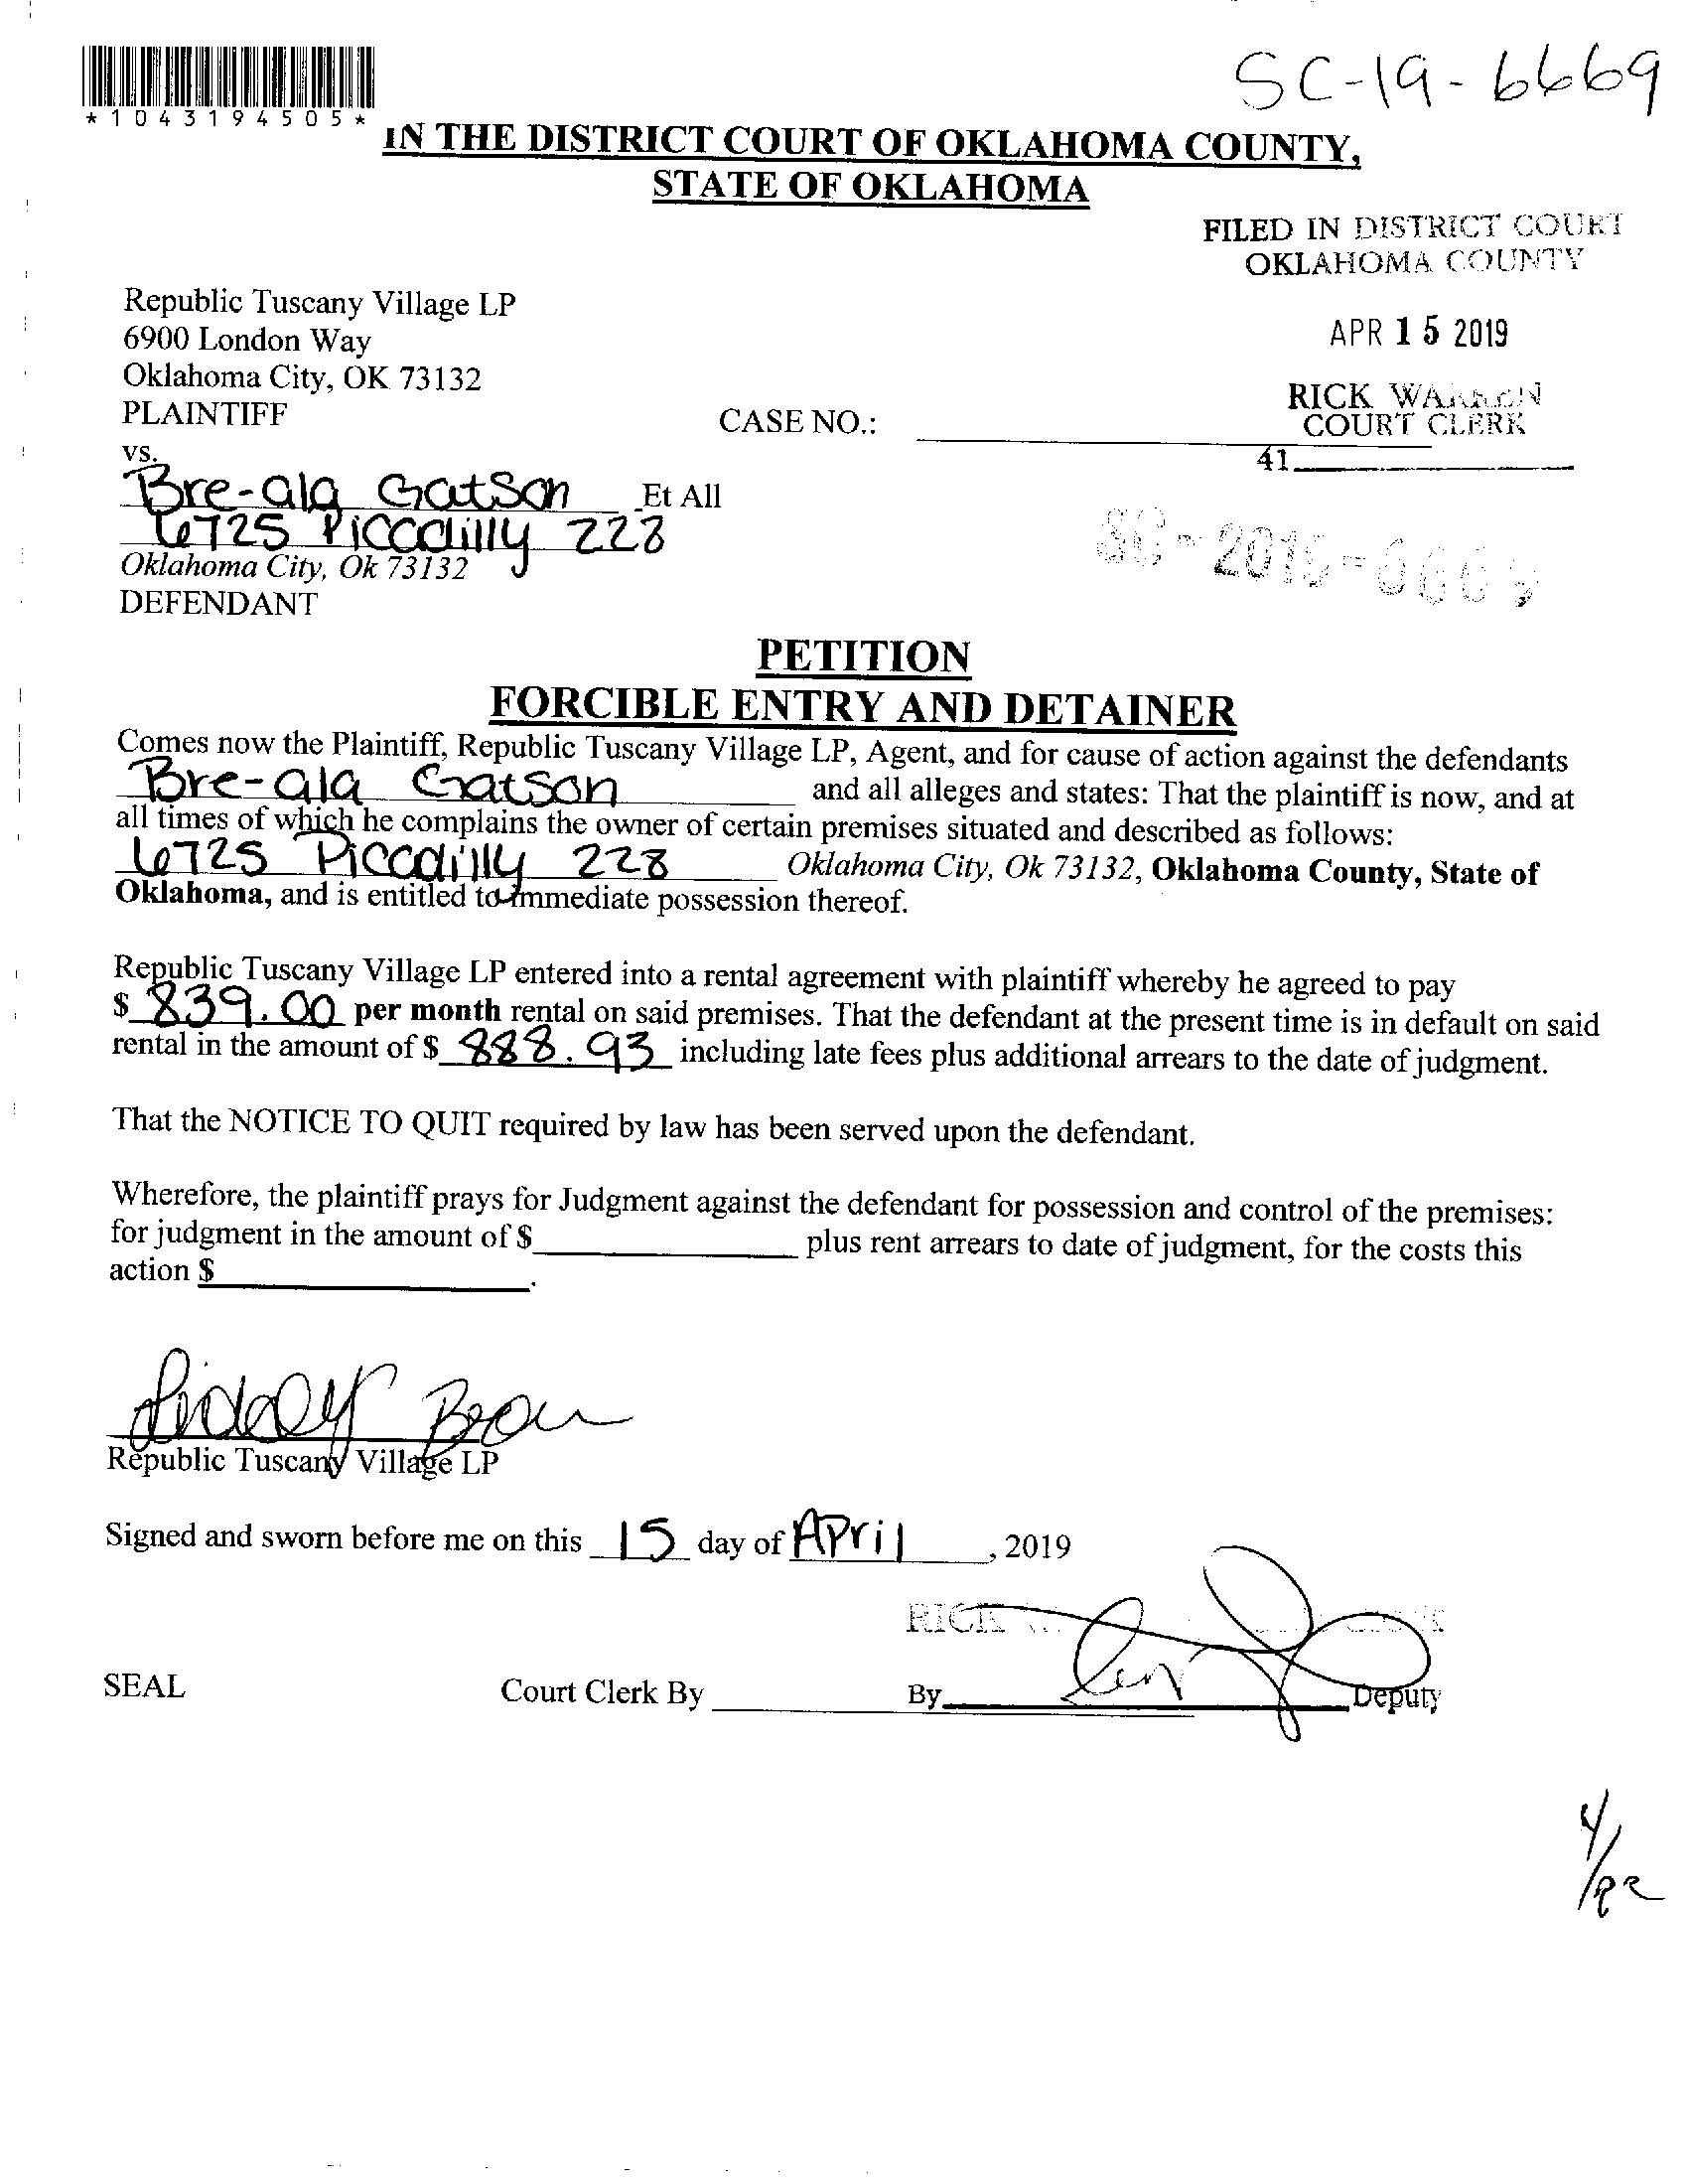 SC-19-6669
*1043194505*
IN THE DISTRICT COURT OF OKLAHOMA COUNTY,
STATE OF OKLAHOMA
FILED IN DISTRICT COURT
OKLAHOMA COUNTY
Republic Tuscany Village LP
6900 London Way
Oklahoma City, OK 73132
PLAINTIFF
APR 15 2019
RICK WARREN
COURT CLERK
CASE NO.:
41
vs.
Bre-ala Gatson Et All
6725 Piccadilly 228
Oklahoma City, Ok 73132
DEFENDANT
PETITION
FORCIBLE ENTRY AND DETAINER
Comes now the Plaintiff, Republic Tuscany Village LP, Agent, and for cause of action against the defendants
Bre-ala Gatson and all alleges and states: That the plaintiff is now, and at
all times of which he complains the owner of certain premises situated and described as follows:
6725 Piccadilly 228 Oklahoma City, Ok 73132, Oklahoma County, State of
Oklahoma, and is entitled to immediate possession thereof.
Republic Tuscany Village LP entered into a rental agreement with plaintiff whereby he agreed to pay
$ 839.00 per month rental on said premises. That the defendant at the present time is in default on said
rental in the amount of $ 888.93 including late fees plus additional arrears to the date of judgment.
That the NOTICE TO QUIT required by law has been served upon the defendant.
Wherefore, the plaintiff prays for Judgment against the defendant for possession and control of the premises:
for judgment in the amount of $ plus rent arrears to date of judgment, for the costs this
action $ .
Republic Tuscany Village LP
Signed and sworn before me on this 15 day of April, 2019
RICK
SEAL Court Clerk By By Deputy
4/22